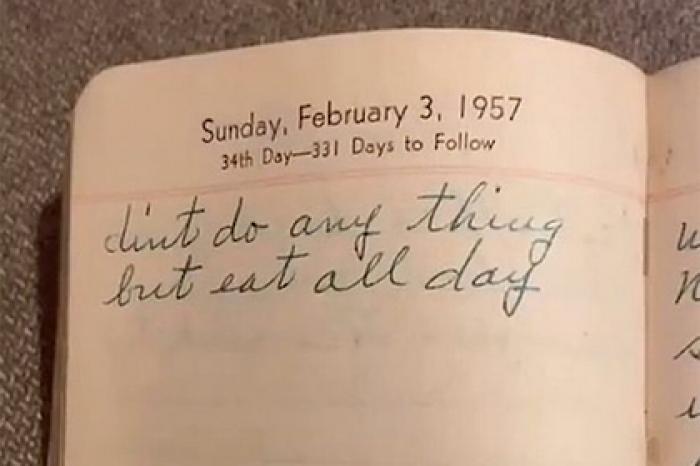 Sunday, February 3, 1957
34th Day—331 Days to Follow
dint do any thing
but eat all day